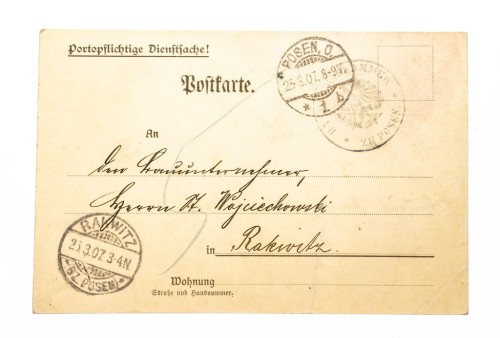 Portopflichtige Dienstsache!
POSEN. O.
25.3.07. 8-9V.
* 1 b
ZU POSEN
Postkarte.
An
den Bauunternehmer,
Herrn St. Wojciechowski
in Rakwitz.
RAKWITZ
25.3.07. 3-4N
* (BZ. POSEN) *
Wohnung
Straße und Hausnummer.